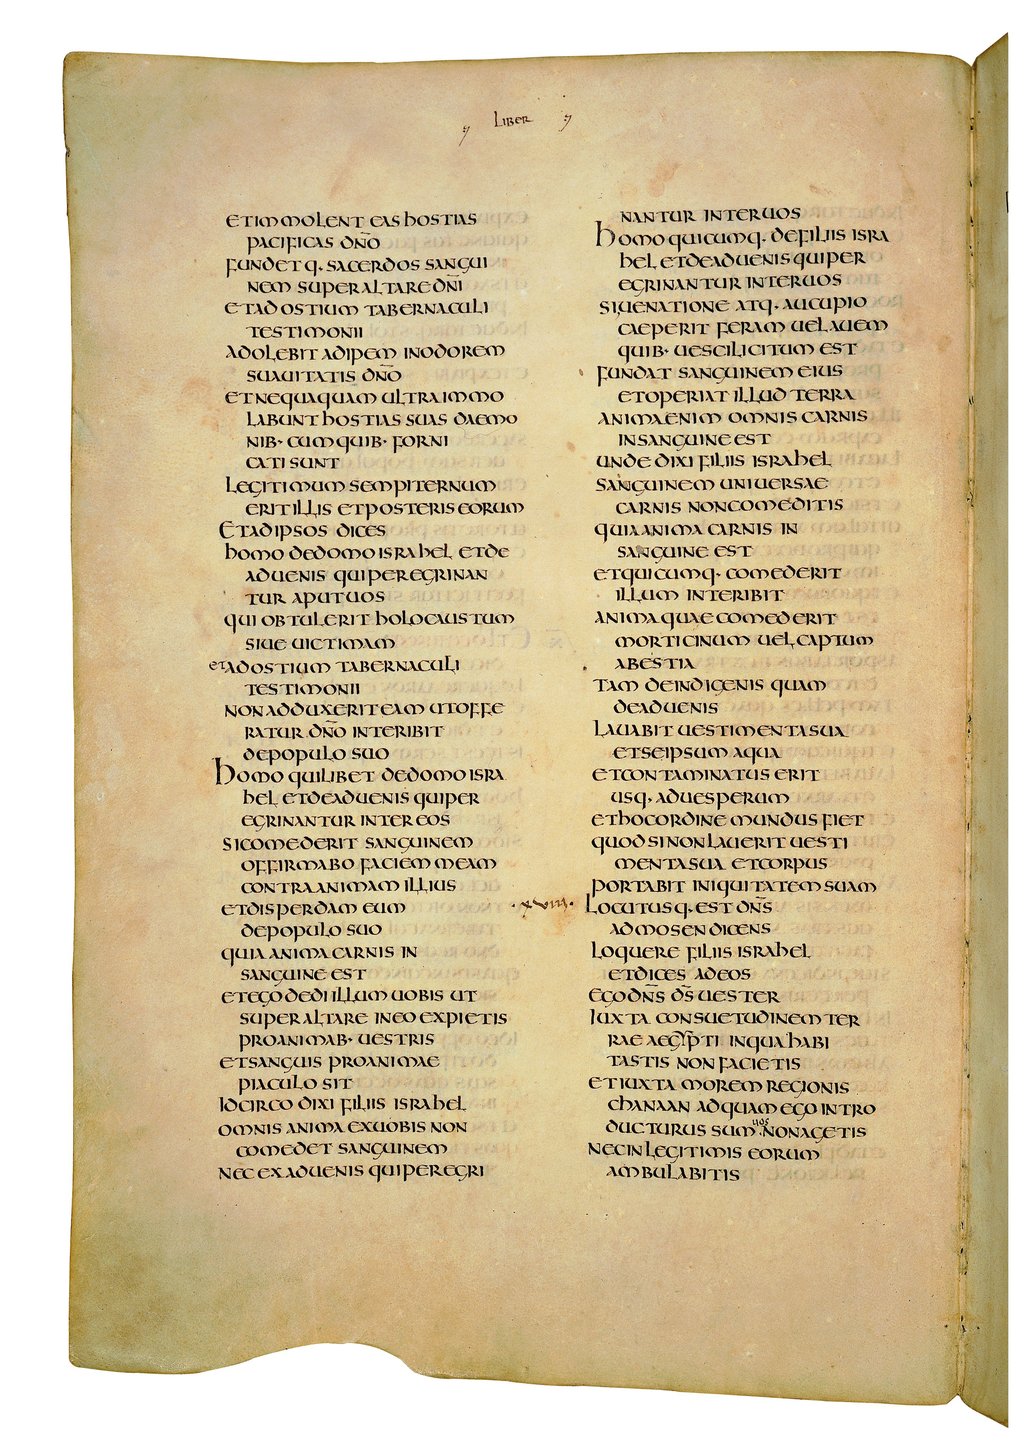 LIBER
ETIMMOLENT EAS hOSTIAS
PACIFICAS DN̄O
FUNDETQ· SACERDOS SANGUI
NEM SUPERALTARE DN̄I
ETAD OSTIUM TABERNACULI
TESTIMONII
ADOLEBIT ADIPEM INODOREM
SUAUITATIS DN̄O
ETNEQUAQUAM ULTRA IMMO
LABUNT hOSTIAS SUAS DAEMO
NIB· CUM QUIB· FORNI
CATI SUNT
LEGITIMUM SEMPITERNUM
ERIT ILLIS ETPOSTERIS EORUM
ETADIPSOS DICES
hOMO DEDOMO ISRAhEL ETDE
ADUENIS QUI PEREGRINAN
TUR APUT UOS
QUI OBTULERIT hOLOCAUSTUM
SIUE UICTIMAM
ET ADOSTIUM TABERNACULI
TESTIMONII
NON ADDUXERIT EAM UTOFFE
RATUR DN̄O INTERIBIT
DEPOPULO SUO
hOMO QUILIBET DEDOMO ISRA
hEL ETDEADUENIS QUIPER
EGRINANTUR INTER EOS
SICOMEDERIT SANGUINEM
OFFIRMABO FACIEM MEAM
CONTRAANIMAM ILLIUS
ETDISPERDAM EUM
DEPOPULO SUO
QUIA ANIMA CARNIS IN
SANGUINE EST
ETEGO DEDI ILLUM UOBIS UT
SUPERALTARE INEO EXPIETIS
PROANIMAB· UESTRIS
ETSANGUIS PROANIMAE
PIACULO SIT
IDCIRCO DIXI FILIIS ISRAhEL
OMNIS ANIMA EXUOBIS NON
COMEDET SANGUINEM
NEC EXADUENIS QUIPEREGRI
NANTUR INTERUOS
hOMO QUICUMQ· DEFILIIS ISRA
hEL ETDEADUENIS QUIPER
EGRINANTUR INTERUOS
SIUENATIONE ATQ· AUCUPIO
CAEPERIT FERAM UEL AUEM
QUIB· UESCI LICITUM EST
FUNDAT SANGUINEM EIUS
ETOPERIAT ILLUD TERRA
ANIMA ENIM OMNIS CARNIS
INSANGUINE EST
UNDE DIXI FILIIS ISRAhEL
SANGUINEM UNIUERSAE
CARNIS NONCOMEDITIS
QUIA ANIMA CARNIS IN
SANGUINE EST
ETQUICUMQ· COMEDERIT
ILLUM INTERIBIT
ANIMA QUAE COMEDERIT
MORTICINUM UEL CAPTUM
ABESTIA
TAM DEINDIGENIS QUAM
DEADUENIS
LAUABIT UESTIMENTA SUA
ETSEIPSUM AQUA
ETCONTAMINATUS ERIT
USQ· ADUESPERUM
EThOCORDINE MUNDUS FIET
QUOD SI NON LAUERIT UESTI
MENTA SUA ETCORPUS
PORTABIT INIQUITATEM SUAM
·XVIII·
LOCUTUSQ· EST DN̄S
AD MOSEN DICENS
LOQUERE FILIIS ISRAhEL
ETDICES ADEOS
EGO DN̄S D̄S UESTER
IUXTA CONSUETUDINEM TER
RAE AEGYPTI INQUA hABI
TASTIS NON FACIETIS
ETIUXTA MOREM REGIONIS
ChANAAN AD QUAM EGO INTRO
DUCTURUS SUM UOS NONAGETIS
NECINLEGITIMIS EORUM
AMBULABITIS